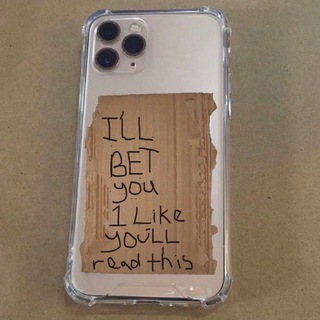 I'LL
BET
you
1 Like
you'LL
read this